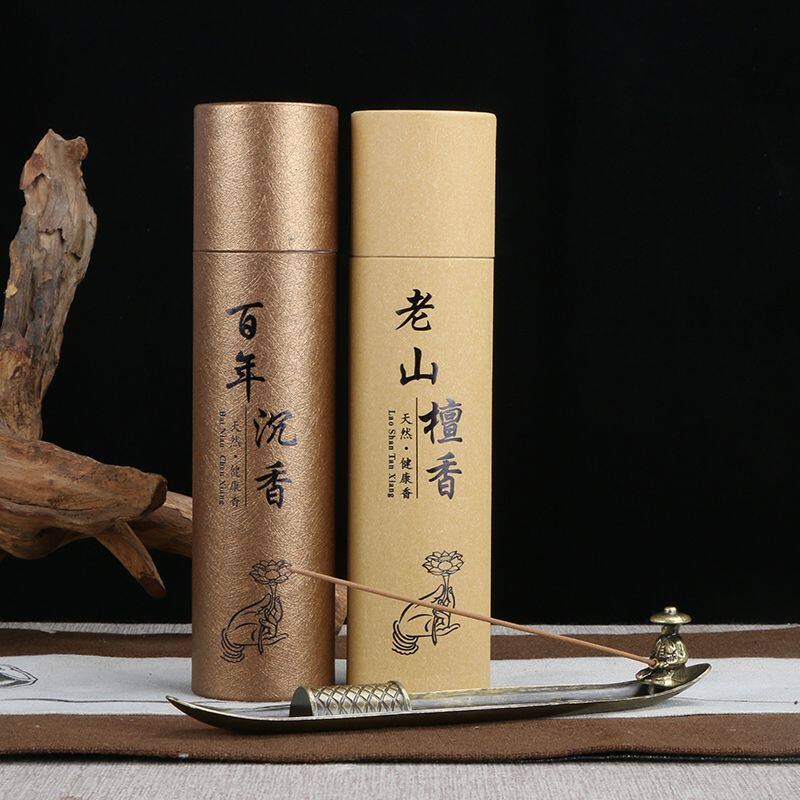 百年
沉香
天然·健康香
Bai Nian Chen Xiang
老山
檀香
天然·健康香
Lao Shan Tan Xiang